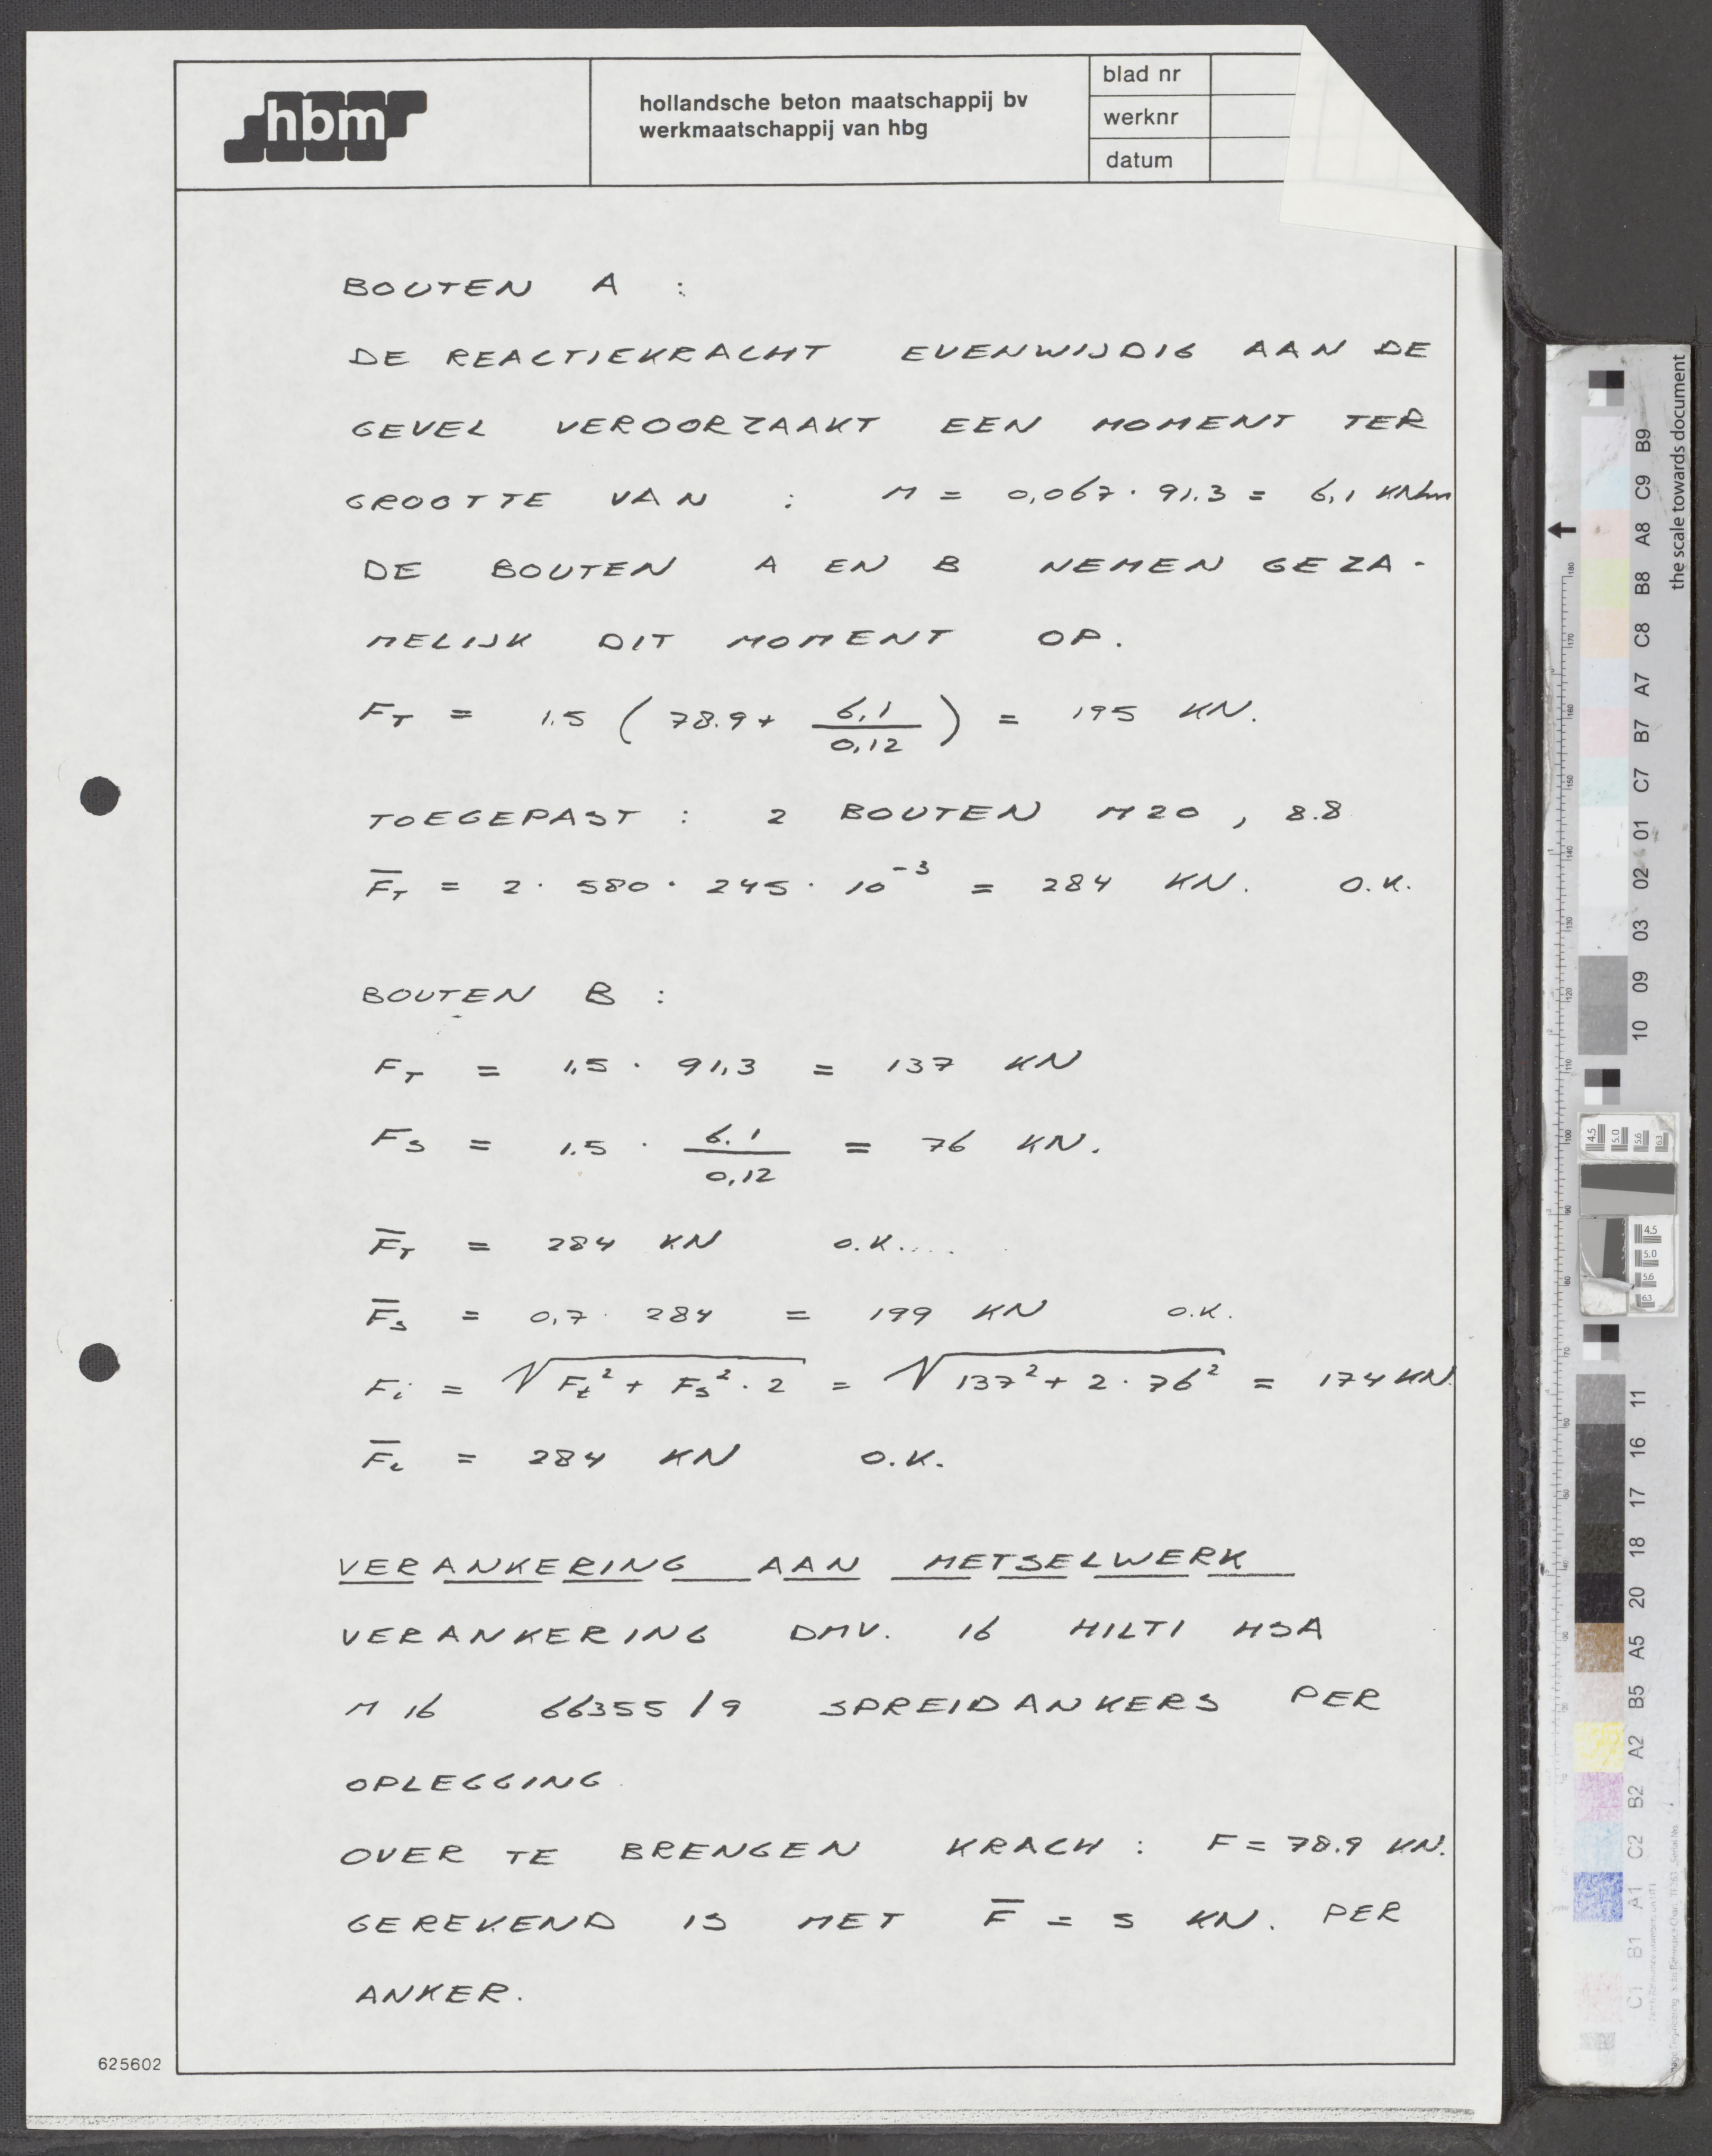 hbm
hollandsche beton maatschappij bv
werkmaatschappij van hbg
blad nr
werknr
datum
BOUTEN A :
DE REACTIEKRACHT EVENWIJDIG AAN DE
GEVEL VEROORZAAKT EEN MOMENT TER
GROOTTE VAN : M = 0,067 · 91.3 = 6,1 KNm
DE BOUTEN A EN B NEMEN GEZA-
MELIJK DIT MOMENT OP.
F_T = 1.5 ( 78.9 + 6,1 / 0,12 ) = 195 KN.
TOEGEPAST : 2 BOUTEN M20 , 8.8
F̅_T = 2 · 580 · 245 · 10⁻³ = 284 KN. O.K.
BOUTEN B :
F_T = 1.5 · 91,3 = 137 KN
F_S = 1.5 · 6.1 / 0,12 = 76 KN.
F̅_T = 284 KN O.K....
F̅_S = 0,7 · 284 = 199 KN O.K.
F_i = √(F_t² + F_S² · 2) = √(137² + 2 · 76²) = 174 KN.
F̅_i = 284 KN O.K.
VERANKERING AAN METSELWERK
VERANKERING DMV. 16 HILTI HSA
M 16 66355/9 SPREIDANKERS PER
OPLEGGING.
OVER TE BRENGEN KRACH : F = 78.9 KN.
GEREKEND IS MET F̅ = 5 KN. PER
ANKER.
625602
the scale towards document
B9
C9
A8
B8
C8
A7
B7
C7
01
02
03
09
10
11
16
17
18
20
A5
B5
A2
B2
C2
A1
B1
C1